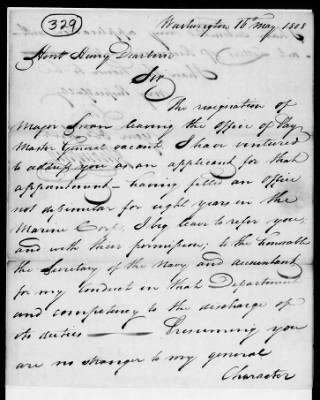 329
Washington 16th May 1808
Honl Henry Dearborn
Sir
The resignation of
Major Swan leaving the Office of Pay
Master General vacant. I have ventured
to address you as an applicant for that
appointment – having filled an Office
not disimilar for eight years in the
Marine Corps, I beg leave to refer you,
and with their permission; to the honorable
the Secretary of the Navy and accountant
for my conduct in that Department
and competency to the discharge of
its duties — Presuming you
are no stranger to my general
Character